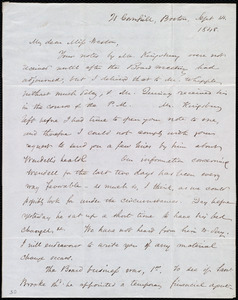 21 Cornhill, Boston, Sept 14,
1848.
My dear Miss Weston,
Your notes by Mr. Kingsbury were not
received until after the Board meeting had
adjourned, but I delivered that to Mr. Whipple
without much delay, & Mr. Quincy received his
in the course of the P.M. Mr. Kingsbury
left before I had time to comply with your
request to send you a few lines by him about
Wendell's health. Our information concerning
Wendell for the last two days has been every
way favorable. Is as much so as we could
possibly look for under the circumstances. They hoped
yesterday he was able to have his bed
changed, &c. We have not heard from him to-day.
I will endeavour to write you if any material
change occurs.
The Board business was, 1st. To see if Saml
Brooke be appointed a temporary financial agent